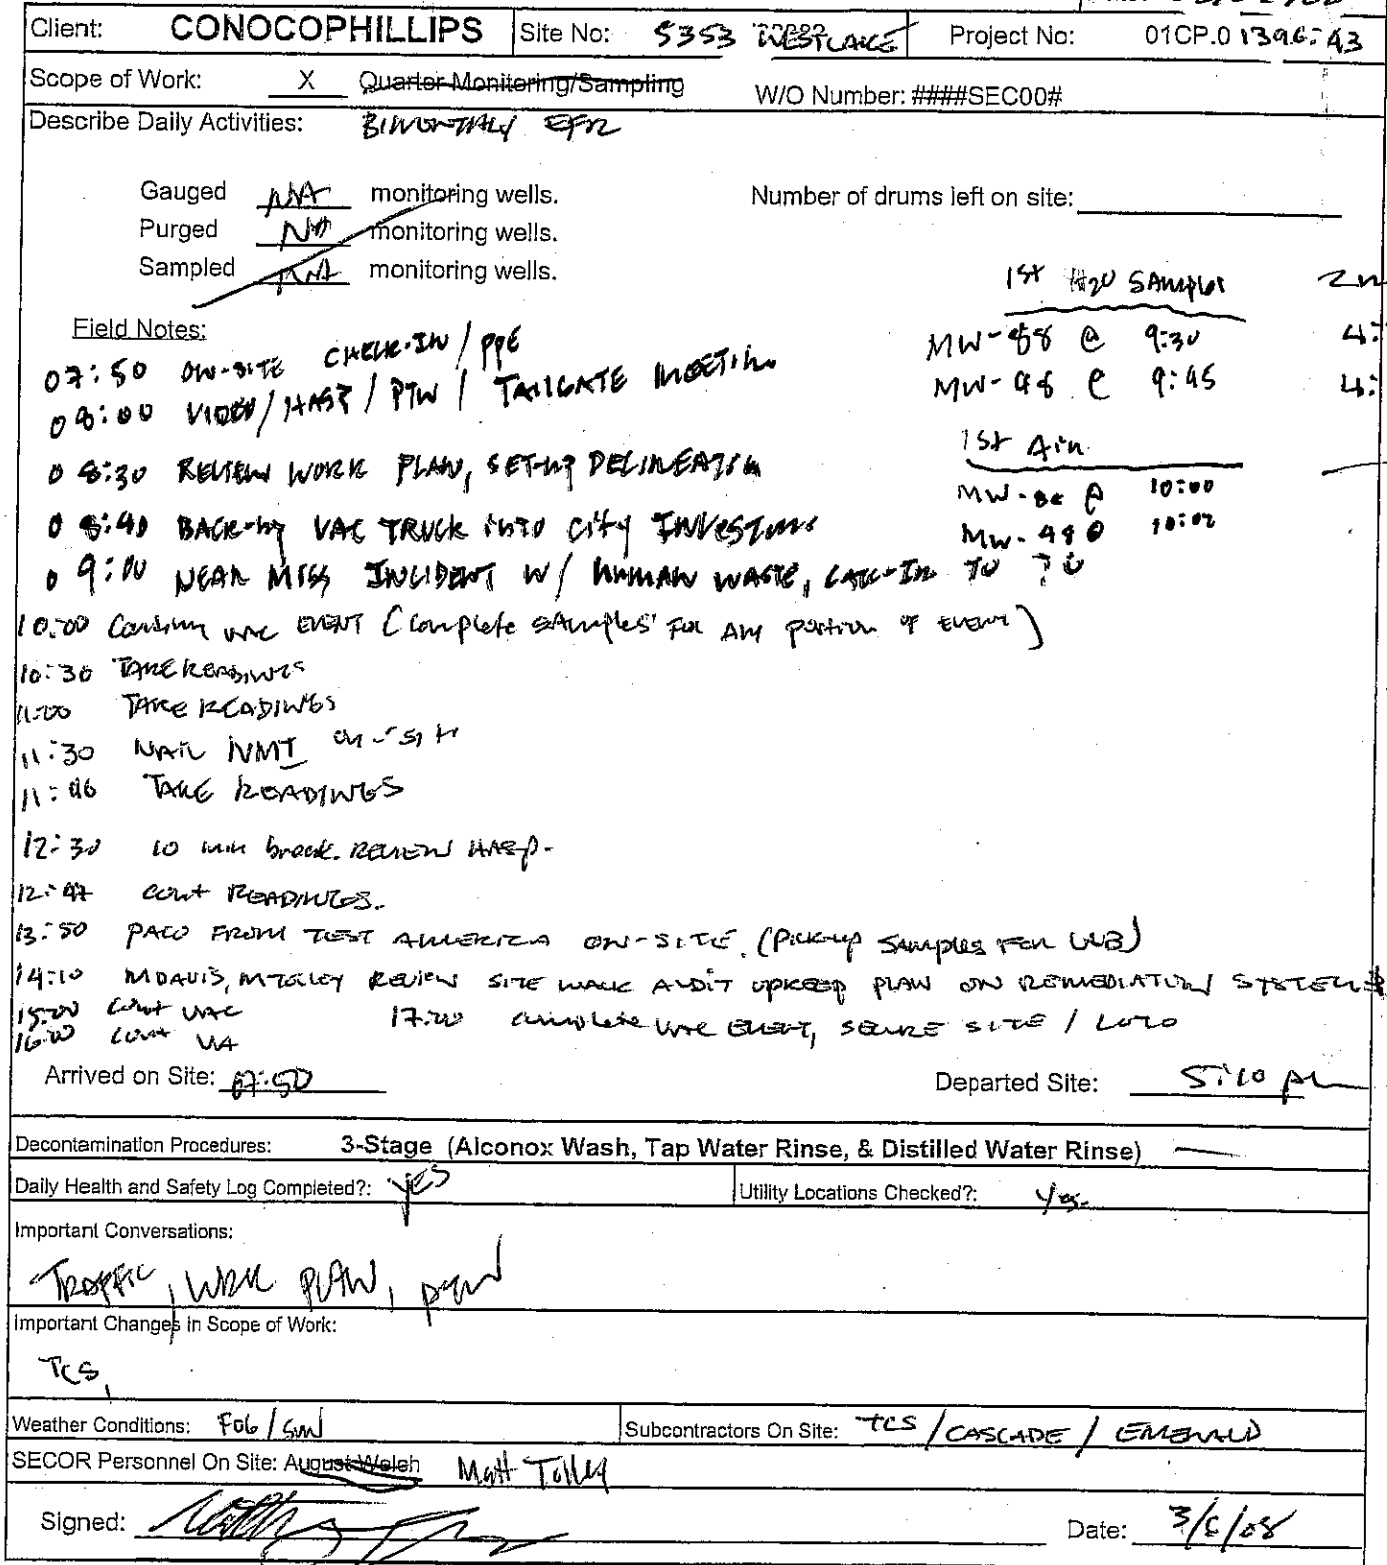 Client: CONOCOPHILLIPS Site No: 5353 WESTLAKE Project No: 01CP.01396.43
Scope of Work: X Quarter Monitoring/Sampling W/O Number: ####SEC00#
Describe Daily Activities: BIMONTHLY EFR
Gauged NA monitoring wells. Number of drums left on site:
Purged NA monitoring wells.
Sampled NA monitoring wells.
1st H2O SAmples 2n
Field Notes:
MW-88 @ 9:30 4:
07:50 ON-SITE CHECK-IN / PPE
MW-98 @ 9:45 4:
08:00 VIDEO / HASP / PTW / TAILGATE MEETING
1st Air
08:30 REVIEW WORK PLAN, SET-up DELINEATION
MW-88 @ 10:00
08:40 BACK-up VAC TRUCK into City INVESTORS
MW-98 @ 10:02
09:00 NEAR MISS INCIDENT W/ HUMAN WASTE, CALL-IN TO
10:00 VAC EVENT (Complete SAmples For Any portion of EVENT)
10:30 TAKE READINGS
11:00 TAKE READINGS
11:30 NMI on-site
11:46 TAKE READINGS
12:30 10 min break. REVIEW HASP.
12:47 cont READINGS.
13:50 PACO FROM TEST AMERICA ON-SITE. (Pick-up SAmples For LAB)
14:10 MDAVIS, MTOLLEY REVIEW SITE WALK AUDIT UPKEEP PLAN ON REMEDIATION SYSTEMS
15:00 cont VAC 17:00 complete VAC EVENT, SECURE SITE / LOTO
16:00 cont VA
Arrived on Site: 07:50 Departed Site: 5:10 pm
Decontamination Procedures: 3-Stage (Alconox Wash, Tap Water Rinse, & Distilled Water Rinse)
Daily Health and Safety Log Completed?: yES Utility Locations Checked?: Yes.
Important Conversations:
TRAFFIC, WORK PLAN, PTW
Important Changes in Scope of Work:
TCS,
Weather Conditions: FOG / SUN Subcontractors On Site: TCS / CASCADE / EMERALD
SECOR Personnel On Site: August Welch Matt Tolley
Signed: Date: 3/6/08